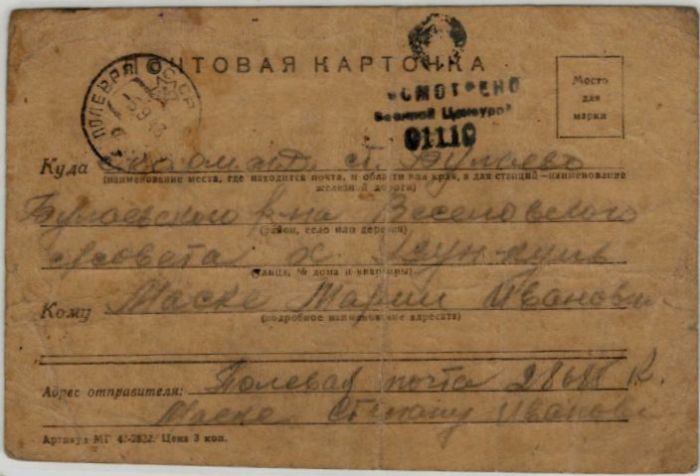 ПОЧТОВАЯ КАРТОЧКА
ПОЛЕВАЯ СССР
ПРОСМОТРЕНО
Военной Цензурой
01110
Место
для
марки
Куда ст. Булаево
(наименование места, где находится почта, и области или края, а для станций—наименование
железной дороги)
Булаевского р-на Веселовского
(район, село или деревня)
с/совета х.
(улица, № дома и квартиры)
Кому Маске Марии Ивановн
(подробное наименование адресата)
Адрес отправителя: Полевая почта К.
Маске Степану Иванов
Цена 3 коп.